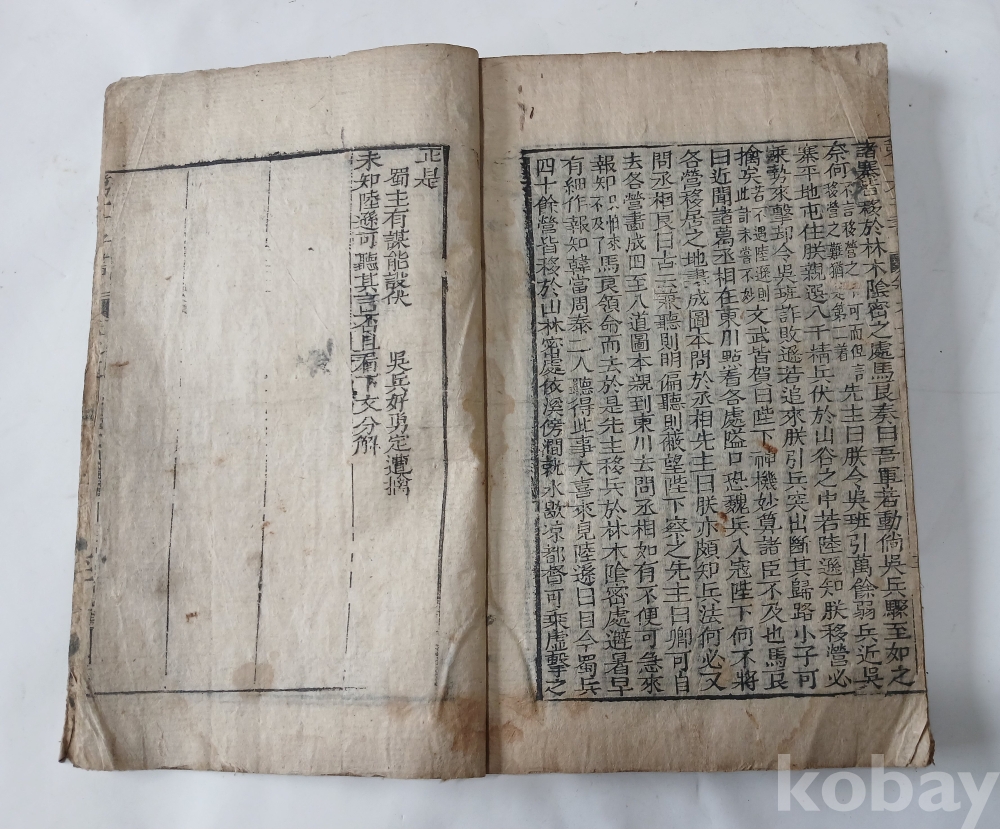 諸寨皆移於林木陰密之處馬良奏曰吾軍若動倘吳兵驟至如之
奈何不言移營之不可而但言移營之難猶是第二着先主曰朕令吳班引萬餘弱兵近吳
寨平地屯住朕親選八千精兵伏於山谷之中若陸遜知朕移營必
乘勢來擊却令吳班詐敗遜若追來朕引兵突出斷其歸路小子可
擒矣若不遇陸遜則此計未嘗不妙文武皆賀曰陛下神機妙筭諸臣不及也馬良
曰近聞諸葛丞相在東川點看各處隘口恐魏兵入寇陛下何不將
各營移居之地畫成圖本問於丞相先主曰朕亦頗知兵法何必又
問丞相良曰古云兼聽則明偏聽則蔽望陛下察之先主曰卿可自
去各營畫成四至八道圖本親到東川去問丞相如有不便可急來
報知只怕來不及了馬良領命而去於是先主移兵於林木陰密處避暑早
有細作報知韓當周泰二人聽得此事大喜來見陸遜曰目今蜀兵
四十餘營皆移於山林密處依溪傍澗就水歇凉都督可乘虛擊之
正是
蜀主有謀能設伏 吳兵好勇定遭擒
未知陸遜可聽其言否且看下文分解
kobay